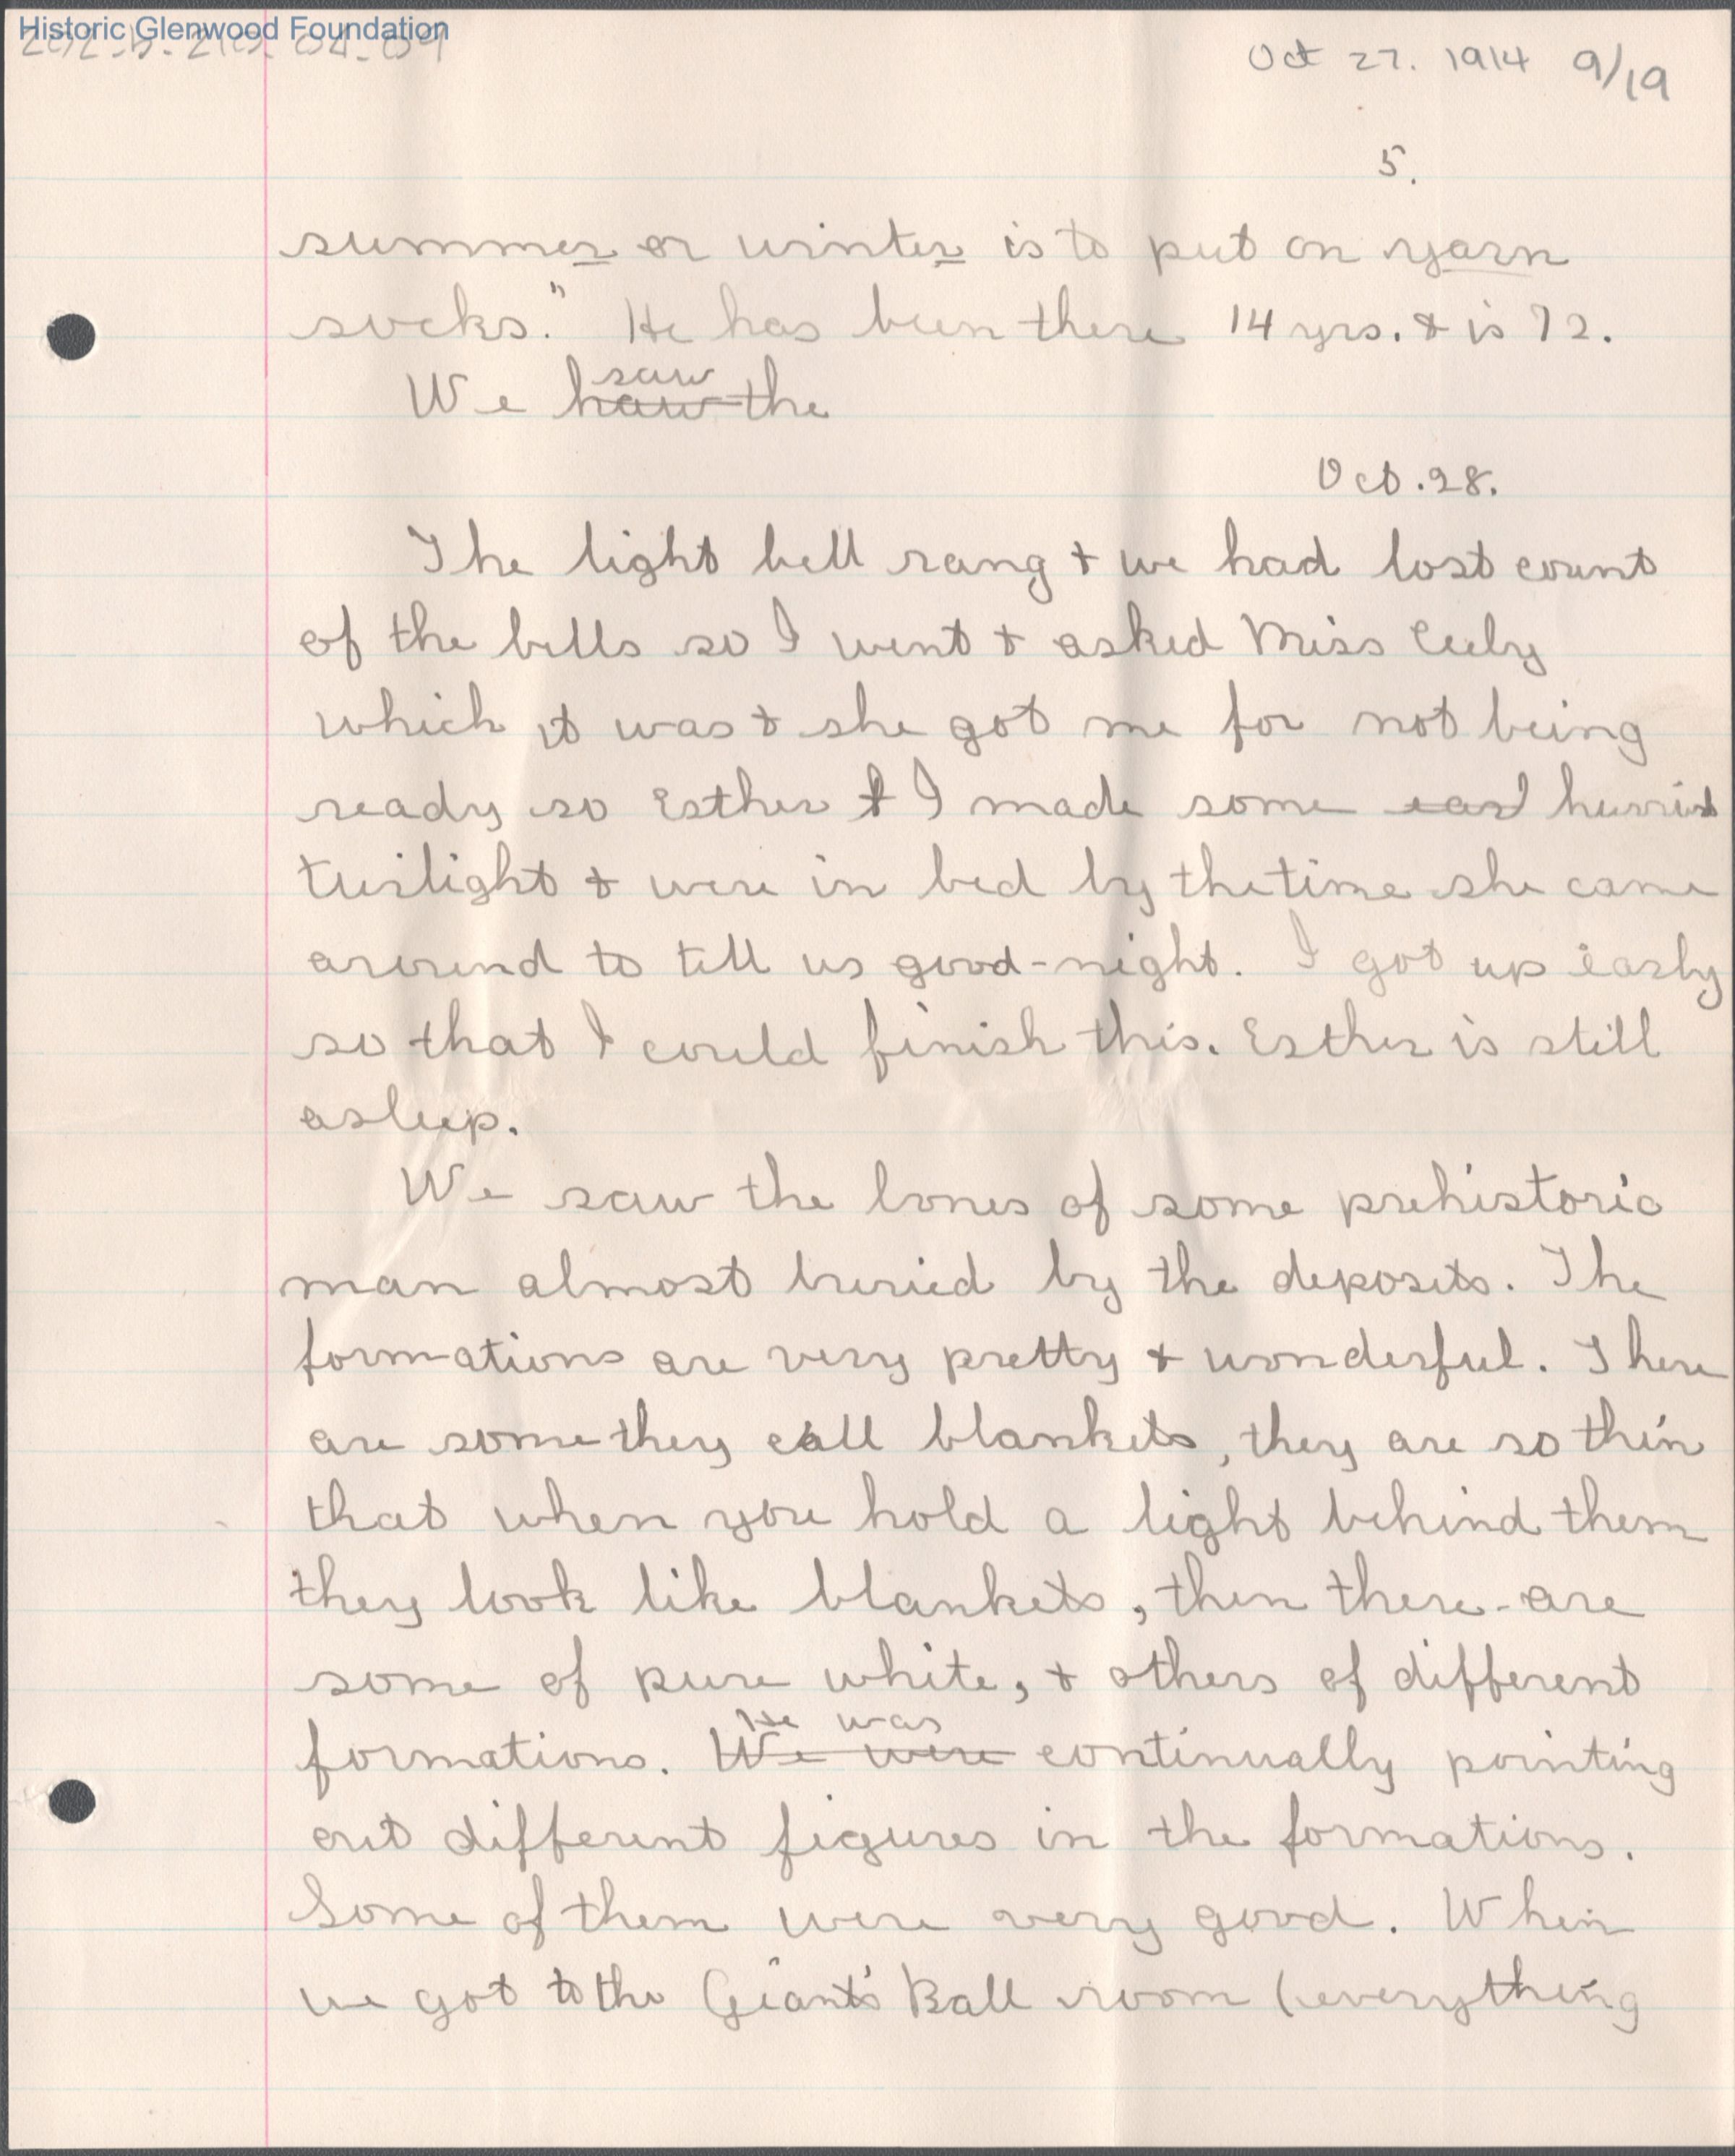 Historic Glenwood Foundation
Oct 27. 1914 9/19
5.
summer or winter is to put on yarn
socks." He has been there 14 yrs. & is 72.
saw
We haw the
Oct. 28.
The light bell rang & we had lost count
of the bells so I went & asked Miss
which it was & she got me for not being
ready so Esther & I made some hurried
twilight & were in bed by the time she came
around to tell us good-night. I got up early
so that I could finish this. Esther is still
asleep.
We saw the bones of some prehistoric
man almost buried by the deposits. The
formations are very pretty & wonderful. There
are some they call blankets, they are so thin
that when you hold a light behind them
they look like blankets, then there are
some of pure white, & others of different
He was
formations. We were continually pointing
out different figures in the formations.
Some of them were very good. When
we got to the Giant's Ball room (everything